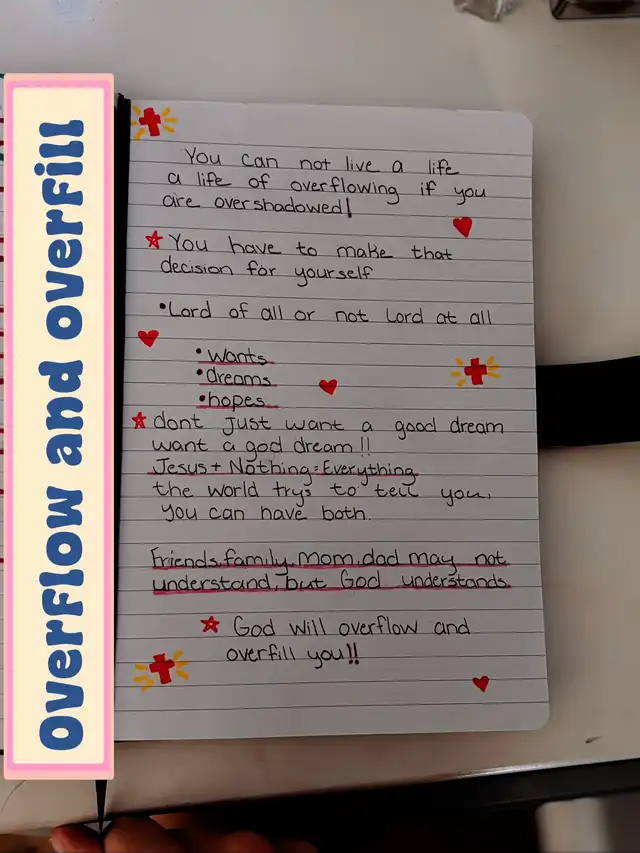 Overflow and overfill
You can not live a life
a life of overflowing if you
are overshadowed!
You have to make that
decision for yourself
•Lord of all or not Lord at all
•wants
•dreams
•hopes
dont just want a good dream
want a god dream!!
Jesus + Nothing = Everything
the world trys to tell you,
you can have both.
Friends, family, Mom, dad may not
understand, but God understands.
God will overflow and
overfill you!!